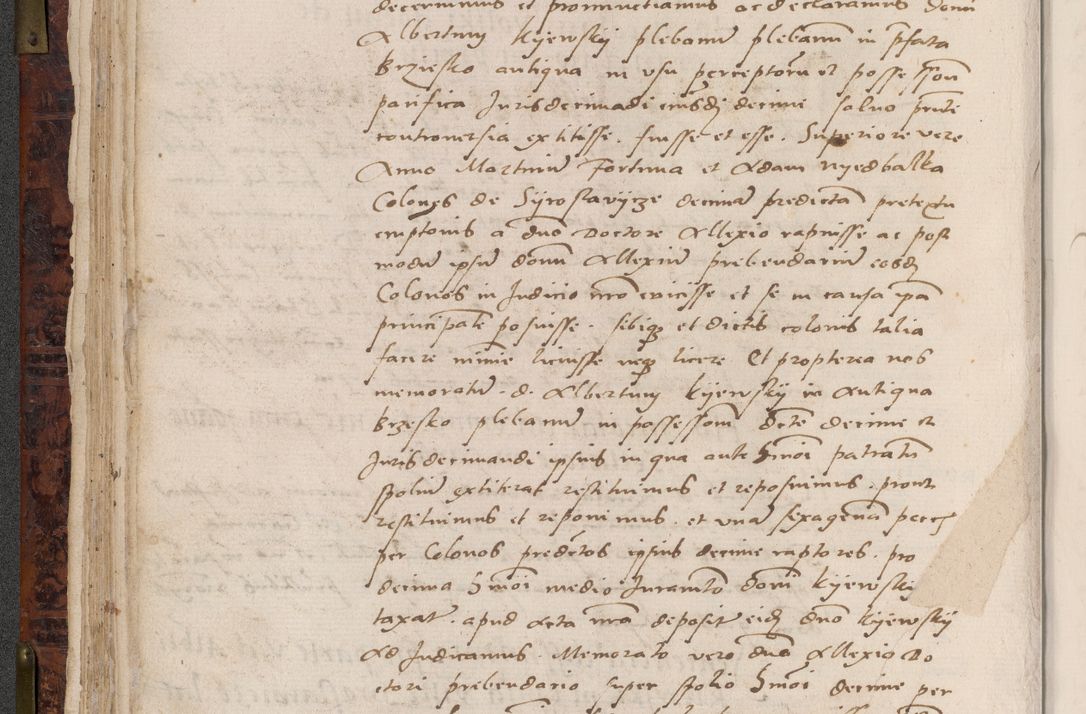 decernimus et pronunctiamus ac declaramus Domi
Albertum Kijewskij plebanum plebanum in pfata
Brziesko antiqua in usu perceptorum et posse
pacifica Juris decimadi eiusdi decime salvo pnte
controversia extitisse . fuisse et esse . Superiore vere
Anno Martinum Fortuna et Adam nyedbalka
Colonos de Syroslavycze decimam predictam pretextu
emptonis a dno Doctore Allexio rapuisse ac post
modum ipsum domi Allexium prebendarium eosdi
Colonos in Judicio nro evicisse et se in causa ipa
principale posuisse . sibiqz et dictis colonis talia
facere minime licuisse neqz licere Et propterea nos
memoratum . d . Albertum Kijewskij in Antiqua
Brzesko plebanum in possessom dcte decime et
Juris decimandi ipsius in qua ante hmoi patratum
spolium extiterat restituimus et reposuimus . prout
restituimus et reponimus . et unam sexagenam
per Colonos predctos ipsius decime raptores . pro
decima hmoi medio Juramto domi Kijewskij
taxat . apud Acta nra deposit eidi dno Kijewskij
Ad Judicamus . Memorato vero dno Allexio Do
ctori prebendario super spolio hmoi decime per